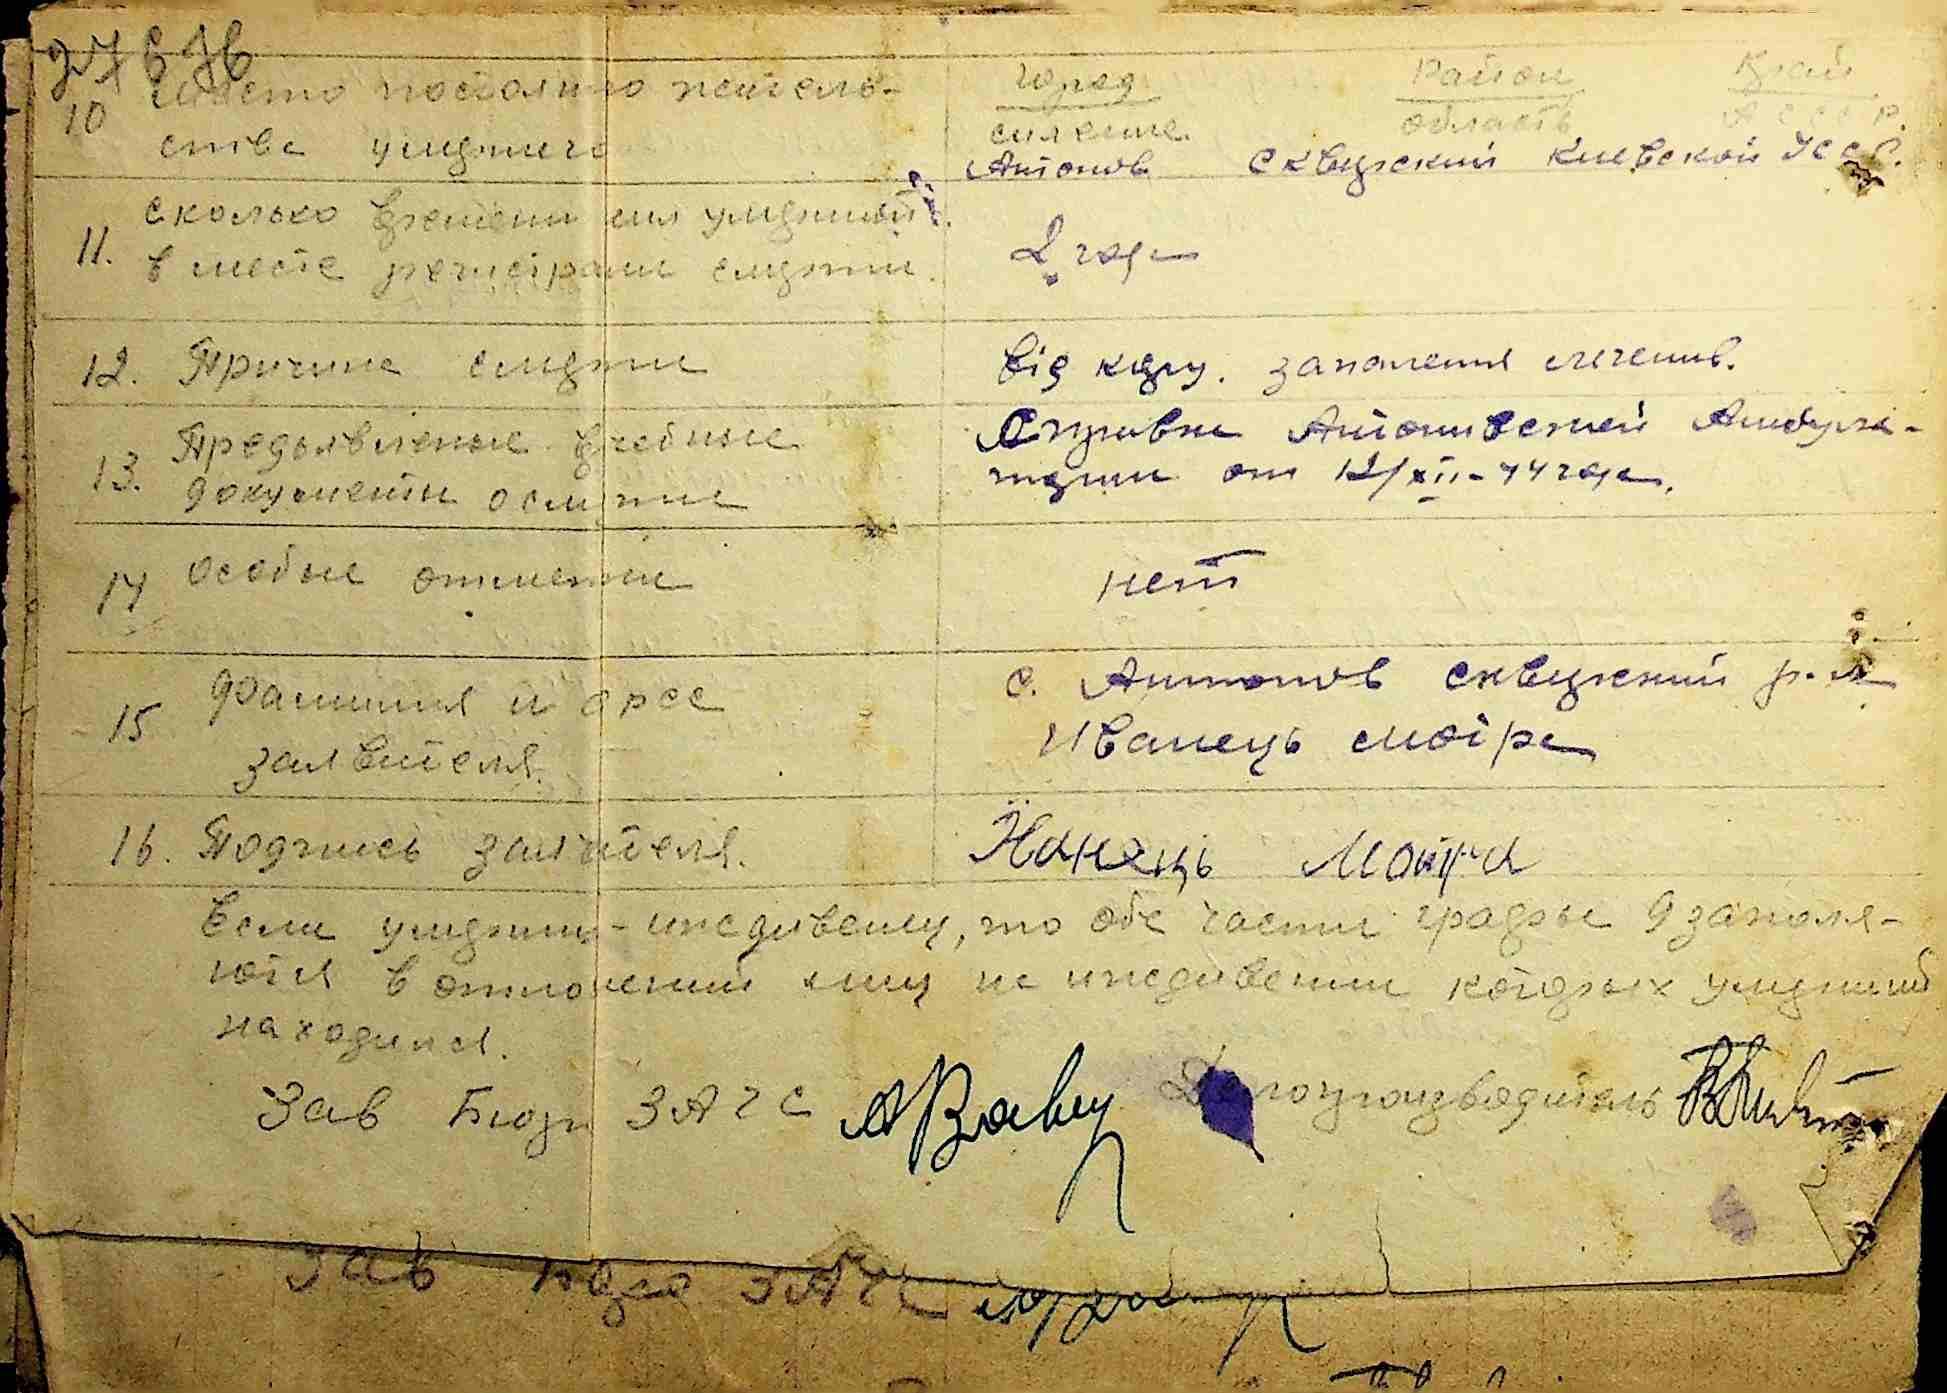 10 Место постоянно житель-
ства умершего
город район край
селение область АССР.
с. Антонов Сквирский Киевской УССР.
11. Сколько времени жил умерший
в месте регистрации смерти.
2 года
12. Причина смерти
від круп. запаления легенів.
13. Предъявленые врачебные
документы о смерти
Справка Антоновской Амбула-
тории от 12/XII-44 года.
14 Особые отметки
нет
15 Фамилия и адрес
заявителя.
с. Антонов Сквирский р-н
Иванець Мотря
16. Подпись заявителя.
Иванець Мотря
Если умерший - иждивенец, то обе части графы 9 заполня-
ются в отношений лиц на иждивении которых умерший
находился.
Зав Бюро ЗАГС Делопроизводитель
Зав Бюро ЗАГС